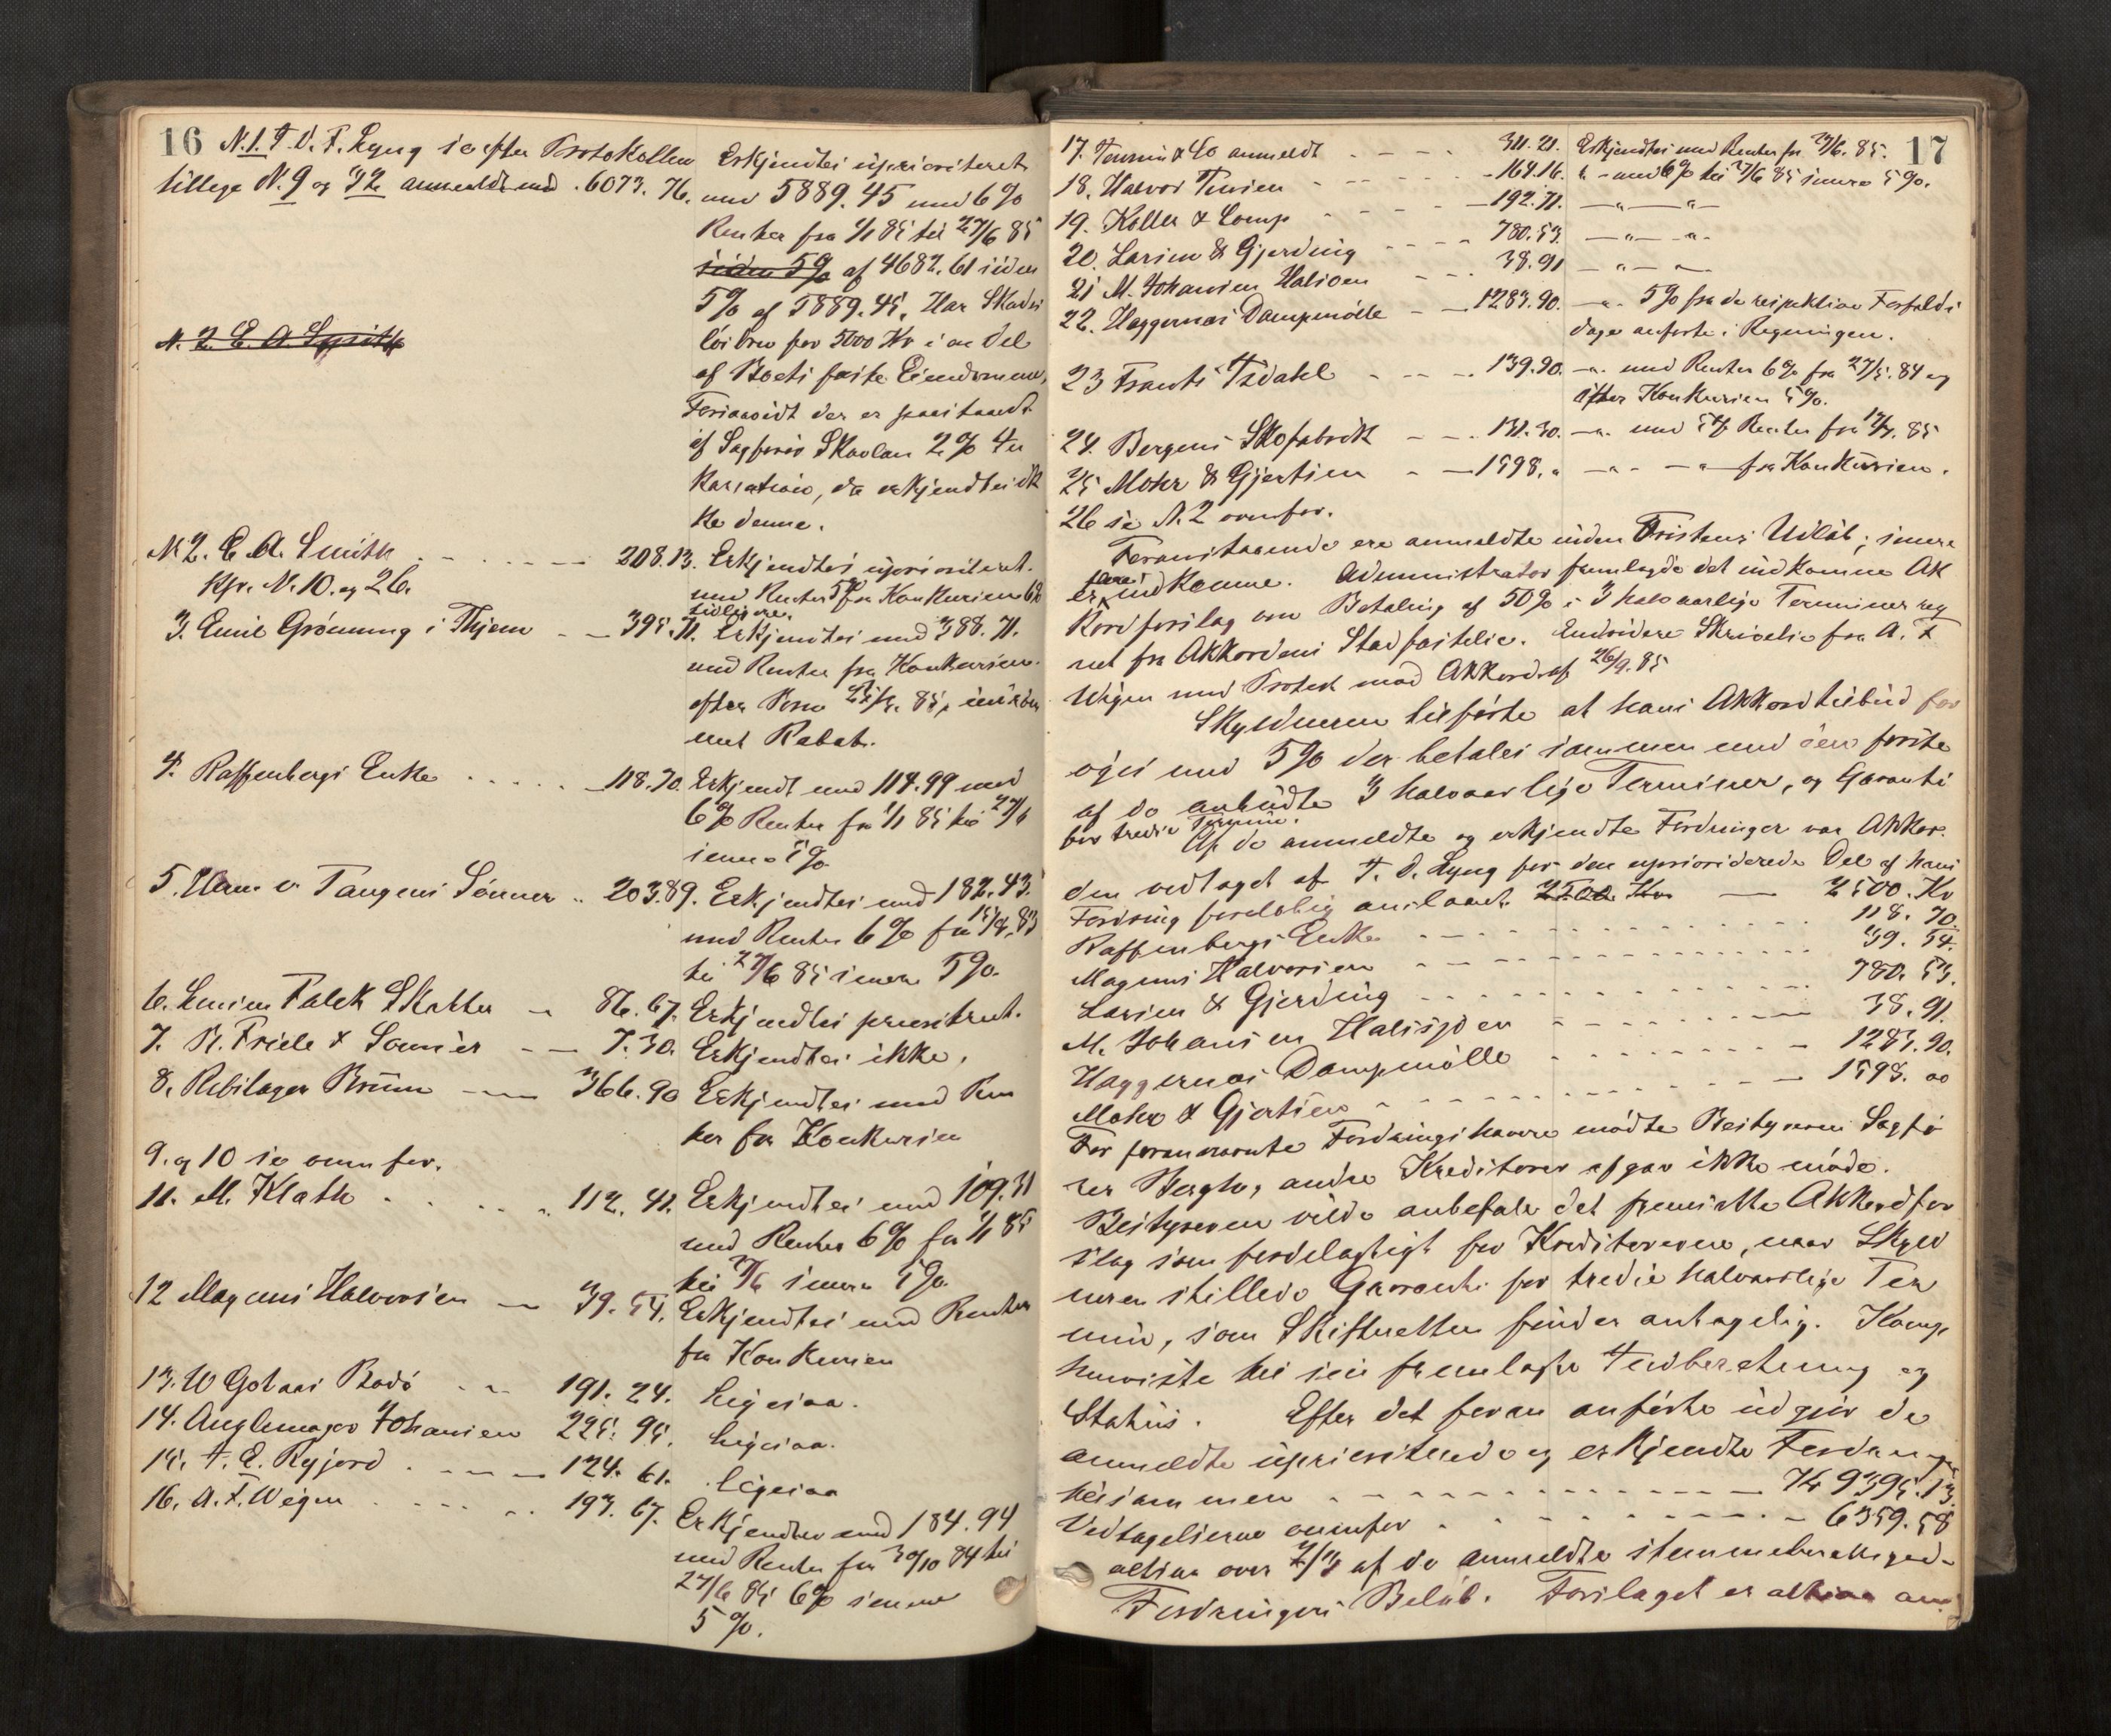 16 N. 1. J. D. F. Lyng se efter Protokollen
tillige N. 9 og 32 anmeldt med . 6073. 76.
Erkjendtes uprioriteret
med 5889. 45 med 6 %
Renter fra 1/1 85 til 27/6 85
siden 5 % af 4682. 61 siden
5 % af 5889. 45. Har Skades
løsbrev for 5000 Kr i en Del
af Boets faste Eiendomme,
Forsaavidt der er paastaaedt
af Sagfører Skavlan 2 %
da erkjendtes ik
ke denne.
N. 2. E. A. Smith
N 2. E. A. Smith . - - - - - 208. 13. Erkjendtes uprioriteret.
Kfr. N. 10. og 26.
med Renter 5 % fra Konkursen 6 %
tidligere.
3. Emil Grønning i Thjem - - 395. 71. Erkjendtes med 388. 71.
med Renter fra Konkursen
efter
Rabat.
4. Raffenbergs Enke . . . . . 118. 70. Erkjendt med 114. 99 med
6 % Renter fra 1/1 85 til 27/6
senere 5 %
5. Herm. v. Tangens Sønner .. 203. 89. Erkjendtes med 182. 43.
med Renter 6 % fra 83
til 27/6 85 senere 5 %.
6. Falck Skatter - 86. 67. Erkjendtes prioriteret.
7. B. Friele & Sønner - - 7. 30. Erkjendtes ikke.
8. Rebslager Bruun - - 366. 90 Erkjendtes med Ren
ter fra Konkursen
9. og 10 se ovenfor.
11. M. Klath . . . . . 112. 41. Erkjendtes med 109. 31
med Renter 6 % fra 1/1 85
til 27/6 senere 5 %
12 Magnus Halvorsen - 39. 54. Erkjendtes med Renter
fra Konkursen
13. W Gotaas Bodø . - 191. 24. ligesaa.
14. Anglemager Johansen 225. 95. ligesaa.
15. J. E. Ryjord . - - - 124. 61. ligesaa
16. A. F. Wigen . - - - . 193. 67. Erkjendtes med 184. 94
med Renter fra 30/10 84 til
27/6 85 6 % senere
5 %.
17
17. & Co anmeldt . - - - 311. 21. Erkjendtes med Renter fra 27/6. 85.
18. Halvor - - - - - 164. 16. " - med 6 % til 27/6 85 senere 5 %.
19. Koller & Comp - - - - 192. 71. - " - " -
20. Larsen & Gjerding - - - - 780. 53. - " - " -
21 M. Johansen Halsøen - - - 38. 91 - " - " -
22. Haggernæs Dampmølle - - 1283. 90. - " - 5 % fra de respektive Forfalds
dage anførte i Regningen.
23 Frants Isdahl - - - 139. 90. - " - med Renter 6 % fra 27/5. 84 og
efter Konkursen 5 %.
24. Bergens Skofabrik - - - 131. 30. - " - med 5 % Renter fra 85
25 Mohr & Gjertsen - - 1598. " - " - - " - fra Konkursen.
26 se N. 2 ovenfor.
Foranstaaende ere anmeldte inden Fristens Udløb; senere
er flere indkomne. Administrator fremlagde det indkomne Ak
kordforslag om Betaling af 50 % i 3 halvaarlige Terminer reg
net fra Akkordens Stadfæstelse. Endvidere Skrivelse fra A. F
Wigen med Protest mod Akkord af 26/9. 85
Skyldneren tilførte at hans Akkordtilbud for
øges med 5 % der betales sammen med den første
af de anbudte 3 halvaarlige Terminer, og Garanti
for tredie Termin.
Af de anmeldte og erkjendte Fordringer var Akkor
den vedtaget af J. D. Lyng for den upriorirede Del af hans
Fordring foreløbig anslaaet 2500 Kr - 2500. Kr
Raffenbergs Enke - - - - - 118. 70
Magnus Halvorsen - - - - - 39. 54.
Larsen & Gjerding - - - - - 780. 53.
M. Johansen Halsøen - - - - - 38. 91.
Haggernæs Dampmølle - - - - - 1283. 90.
Mohr & Gjertsen - - - - - 1598. 00
For forannævnte Fordringshavere mødte Bestyreren Sagfø
rer Bergh, andre Kreditorer afgav ikke møde.
Bestyreren vilde anbefale det fremsatte Akkordfor
slag som fordelagtigt for Kreditorerne, naar Skyld
neren stillede Garanti for tredie halvaarlige Ter
min, som Skifteretten finder antagelig. Komp.
henviste til sin fremlagte Indberetning og
Status. Efter det foran anførte udgjør de
anmeldte upririterede og erkjendte Fordringer
tilsammen . - - - - - Kr 9395. 13.
Vedtagelserne ovenfor . - - - - - 6359. 58
altsaa over 2/3 af de anmeldte stemmeberettigede
Fordringers Beløb. Forslaget er altsaa an